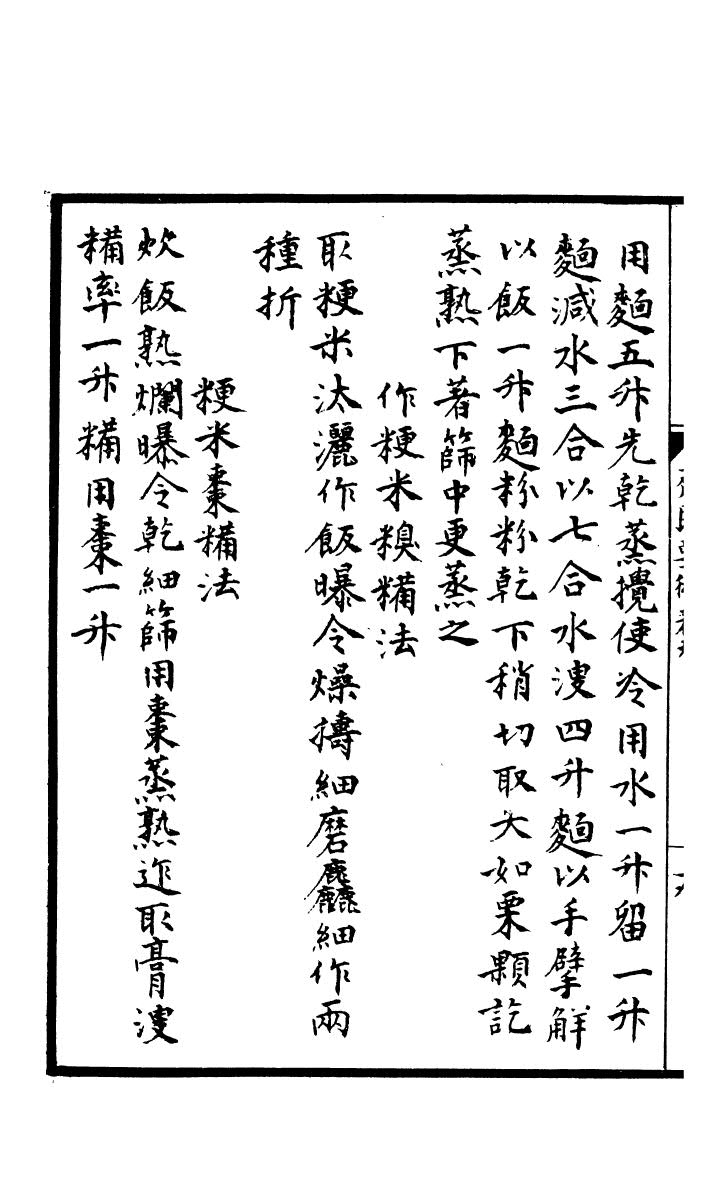 用麵五升先乾蒸攪使冷用水一升留一升
麵減水三合以七合水溲四升麵以手擘解
以飯一升麵粉粉乾下稍切取大如栗顆訖
蒸熟下著篩中更蒸之
作粳米糗糒法
取粳米汰灑作飯曝令燥擣細磨麤細作兩
種折
粳米棗糒法
炊飯熟爛曝令乾細篩用棗蒸熟迮取膏溲
糒率一升糒用棗一升